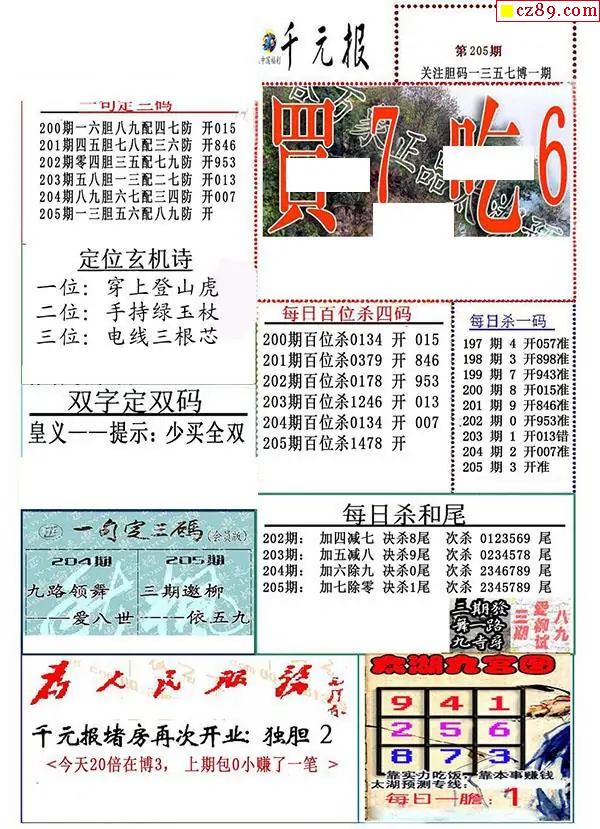 cz89.com
千元报
中国福利
第205期
关注胆码一三五七博一期
買7吃6
一句定三码
200期一六胆八九配四七防 开015
201期四五胆七八配三六防 开846
202期零四胆三五配七九防 开953
203期五八胆一三配二七防 开013
204期八九胆六七配三四防 开007
205期一三胆五六配八九防 开
定位玄机诗
一位：穿上登山虎
二位：手持绿玉杖
三位：电线三根芯
每日百位杀四码
200期百位杀0134 开 015
201期百位杀0379 开 846
202期百位杀0178 开 953
203期百位杀1246 开 013
204期百位杀0134 开 007
205期百位杀1478 开
每日杀一码
197 期 4 开057准
198 期 3 开898准
199 期 7 开943准
200 期 8 开015准
201 期 9 开846准
202 期 0 开953准
203 期 1 开013错
204 期 2 开007准
205 期 3 开准
双字定双码
皇义——提示：少买全双
一句定三碼(会员版)
204期 205期
九路领舞 三期邀柳
——爱八世 ——依五九
每日杀和尾
202期： 加四减七 决杀8尾 次杀 0123569 尾
203期： 加五减八 决杀9尾 次杀 0234578 尾
204期： 加六除九 决杀0尾 次杀 2346789 尾
205期： 加七除零 决杀1尾 次杀 2345789 尾
为人民服务
千元报堵房再次开业：独胆 2
<今天20倍在博3， 上期包0小赚了一笔 >
太湖九宫图
9 4 1
2 5 6
8 7 3
靠实力吃饭，靠本事赚钱
太湖预测专线：
每日一胆：1